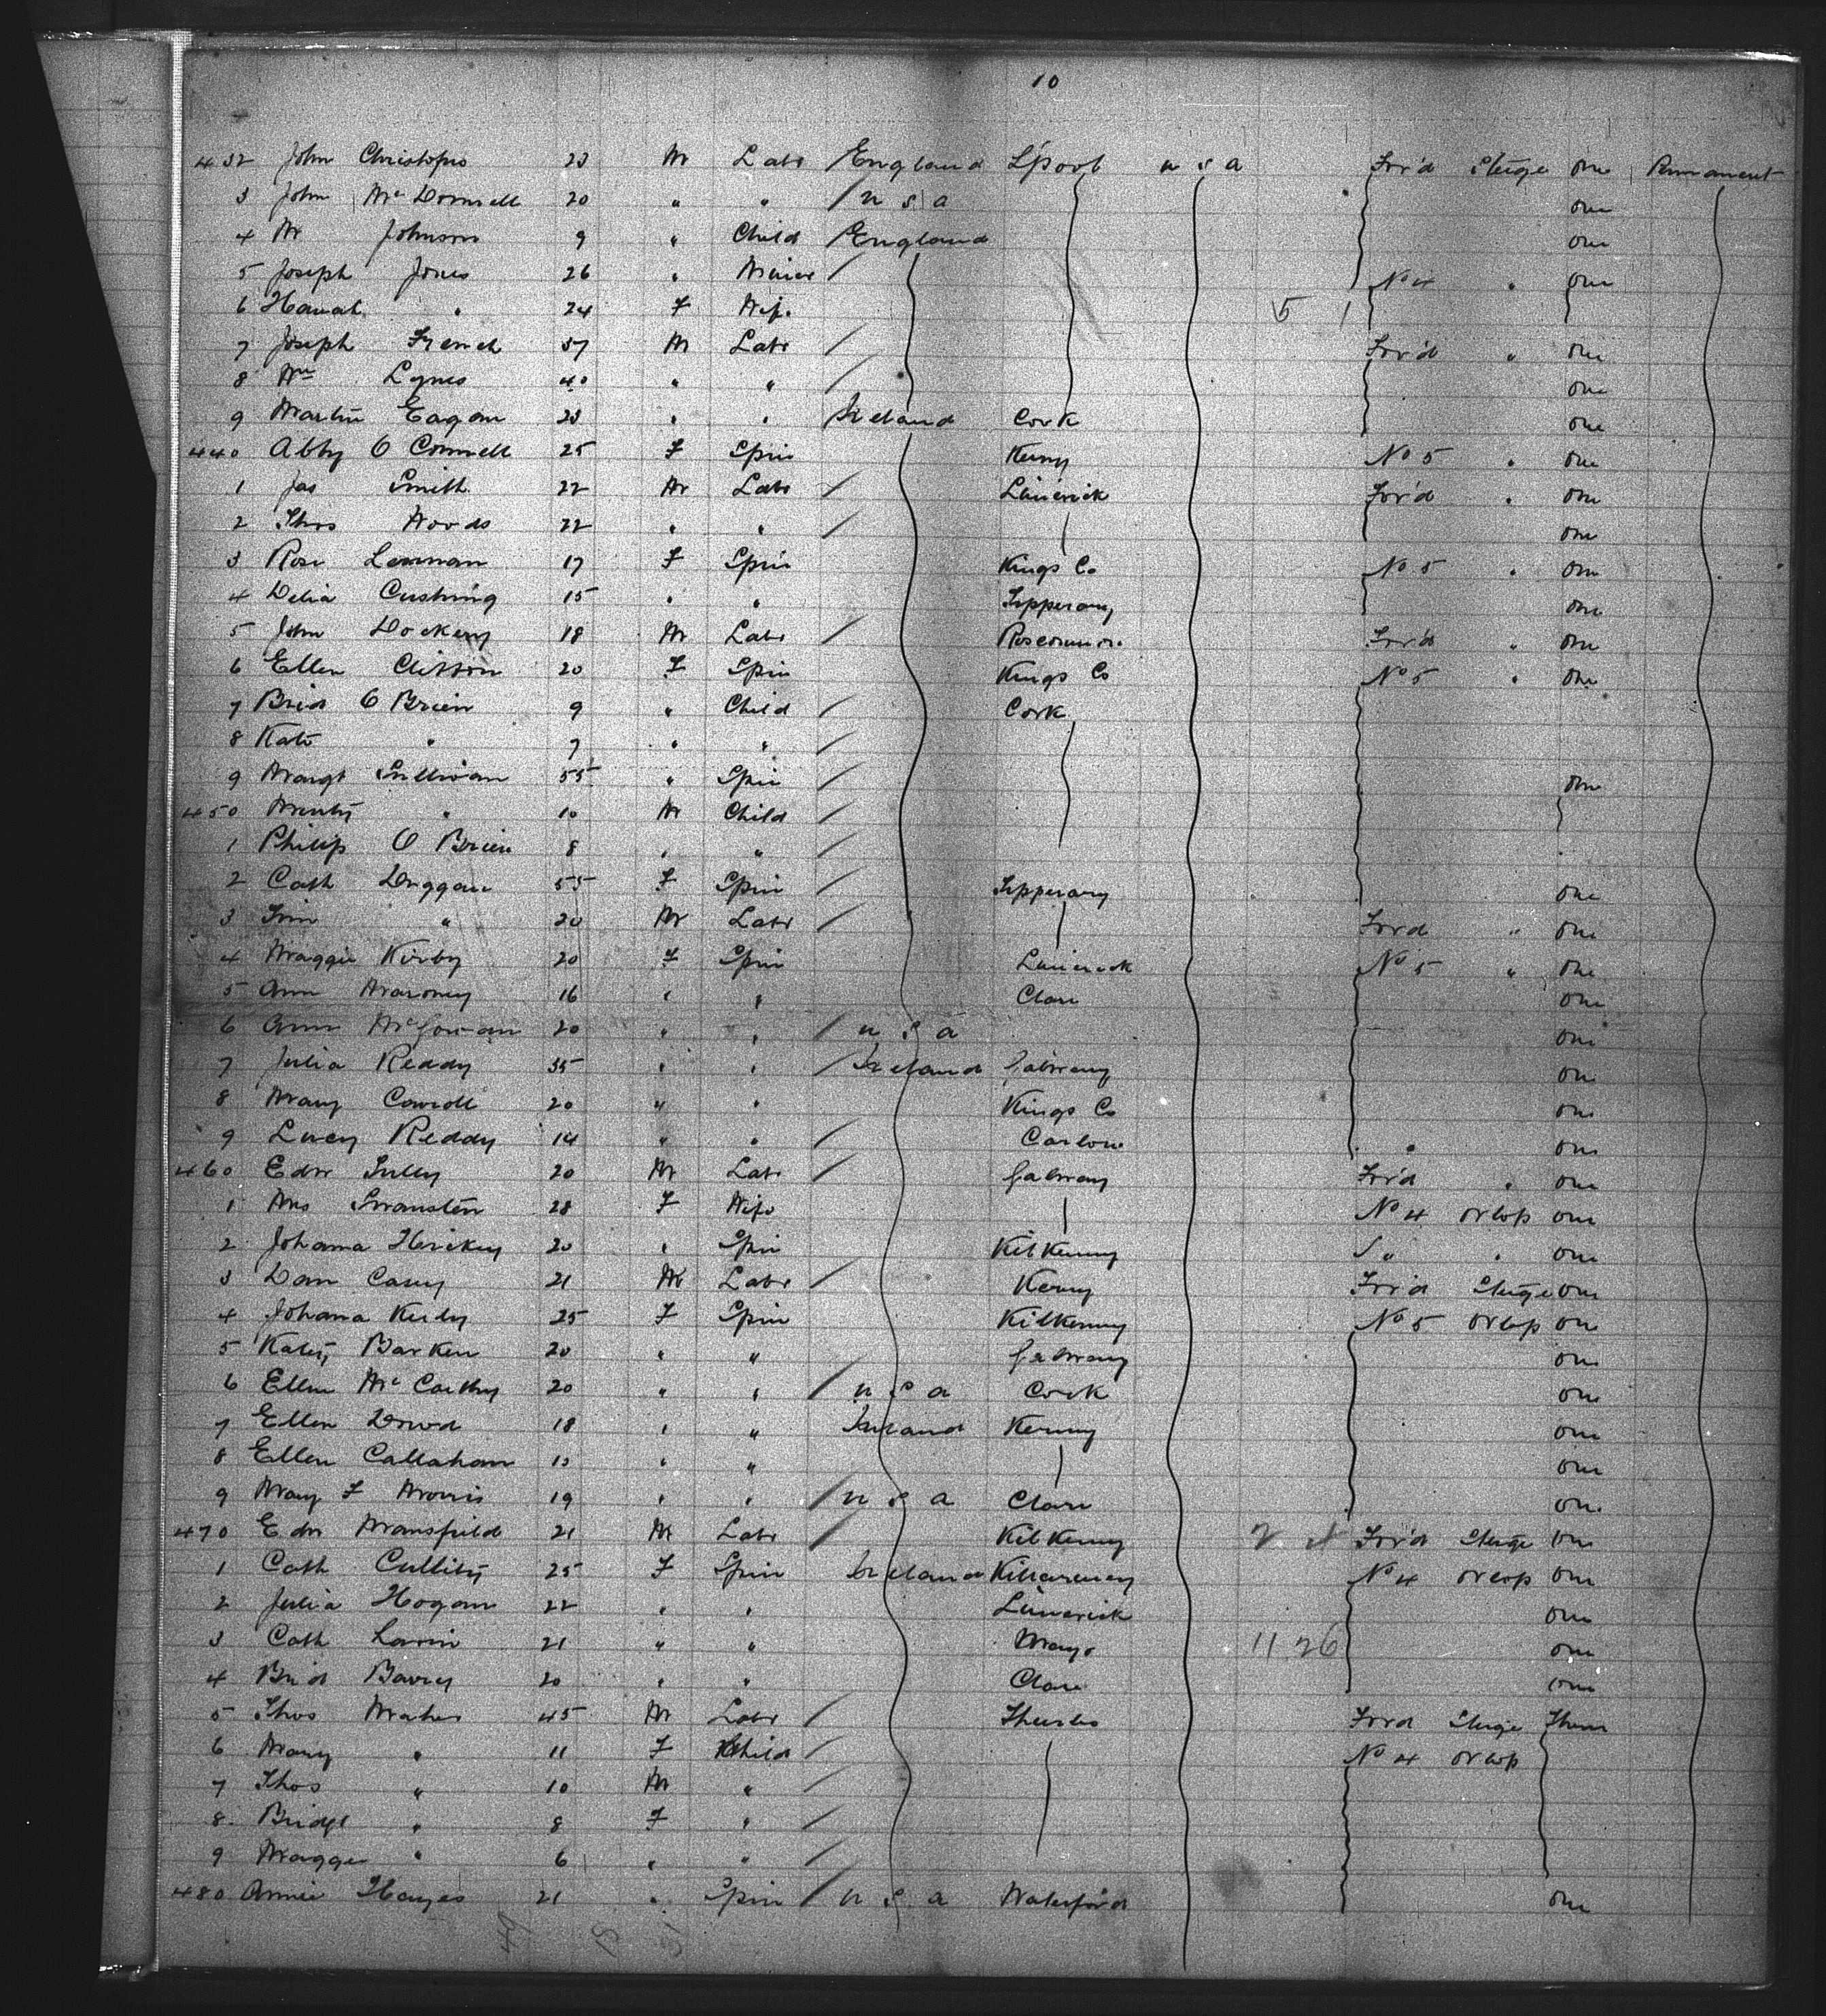 10
432 John Christophs 23 M Labr England L'pool u s a For'd Stuge One Permanent
3 John McDonnell 20 " " / u s a one
4 W Johnson 9 " Child / England one
5 Joseph Jones 26 " Miner / No 4 " one
6 Hanah " 24 F Wife 5 1
7 Joseph French 37 M Labr / For'd " one
8 Wm Lynes 40 " " / one
9 Martin Eagan 23 " " / Ireland Cork one
440 Abby O Connell 25 F Spin Kerry No 5 " one
1 Jas Smith 22 M Labr / Limerick For'd " one
2 Thos Woods 22 " " / one
3 Rose Lennan 17 F Spin Kings Co No 5 " one
4 Delia Cushing 15 " " Tipperary one
5 John Dockery 18 M Labr / Roscommon For'd " one
6 Ellen Clifton 20 F Spin Kings Co No 5 " one
7 Brid O Brien 9 " Child / Cork
8 Kate " 7 " " /
9 Margt Sullivan 55 " Spin / one
450 Murty " 10 M Child /
1 Philip O Brien 8 " " /
2 Cath Duggan 55 F Spin / Tipperary one
3 Tim " 20 M Labr / For'd " one
4 Maggie Kirby 20 F Spin Limerick No 5 " one
5 Ann Maroney 16 " " Clare one
6 Ann McGowan 20 " " / u s a one
7 Julia Reddy 35 " " / Ireland Galway one
8 Mary Carroll 20 " " Kings Co one
9 Lucy Reddy 14 " " / Carlow " one
460 Edw Tully 20 M Labr / Galway For'd " one
1 Mrs Swansten 28 F Wife No 4 Orlop one
2 Johana Hickey 20 " Spin Kilkenny " " one
3 Dan Casey 21 M Labr / Kerry For'd Stuge one
4 Johana Kiely 25 F Spin Kilkenny No 5 Orlop one
5 Katey Barken 20 " " Galway one
6 Ellen McCarthy 20 " " / u s a Cork one
7 Ellen Dowd 18 " " Ireland Kerry one
8 Ellen Callahan 13 " " one
9 Mary F Morris 19 " " / u s a Clare one
470 Edw Mansfield 21 M Labr / Kilkenny For'd Stuge one
1 Cath Cullity 25 F Spin Ireland Killarney No 4 Orlop one
2 Julia Hogan 22 " " Limerick one
3 Cath Lavin 21 " " Mayo 11 26 one
4 Brid Barry 20 " " Clare one
5 Thos Maher 45 M Labr / Thurles For'd Stuge Three
6 Mary " 11 F Child / No 4 Orlop
7 Thos " 10 M " /
8 Bridgt " 8 F " /
9 Maggie " 6 " " /
480 Annie Hayes 21 " Spin / u s a Waterford one